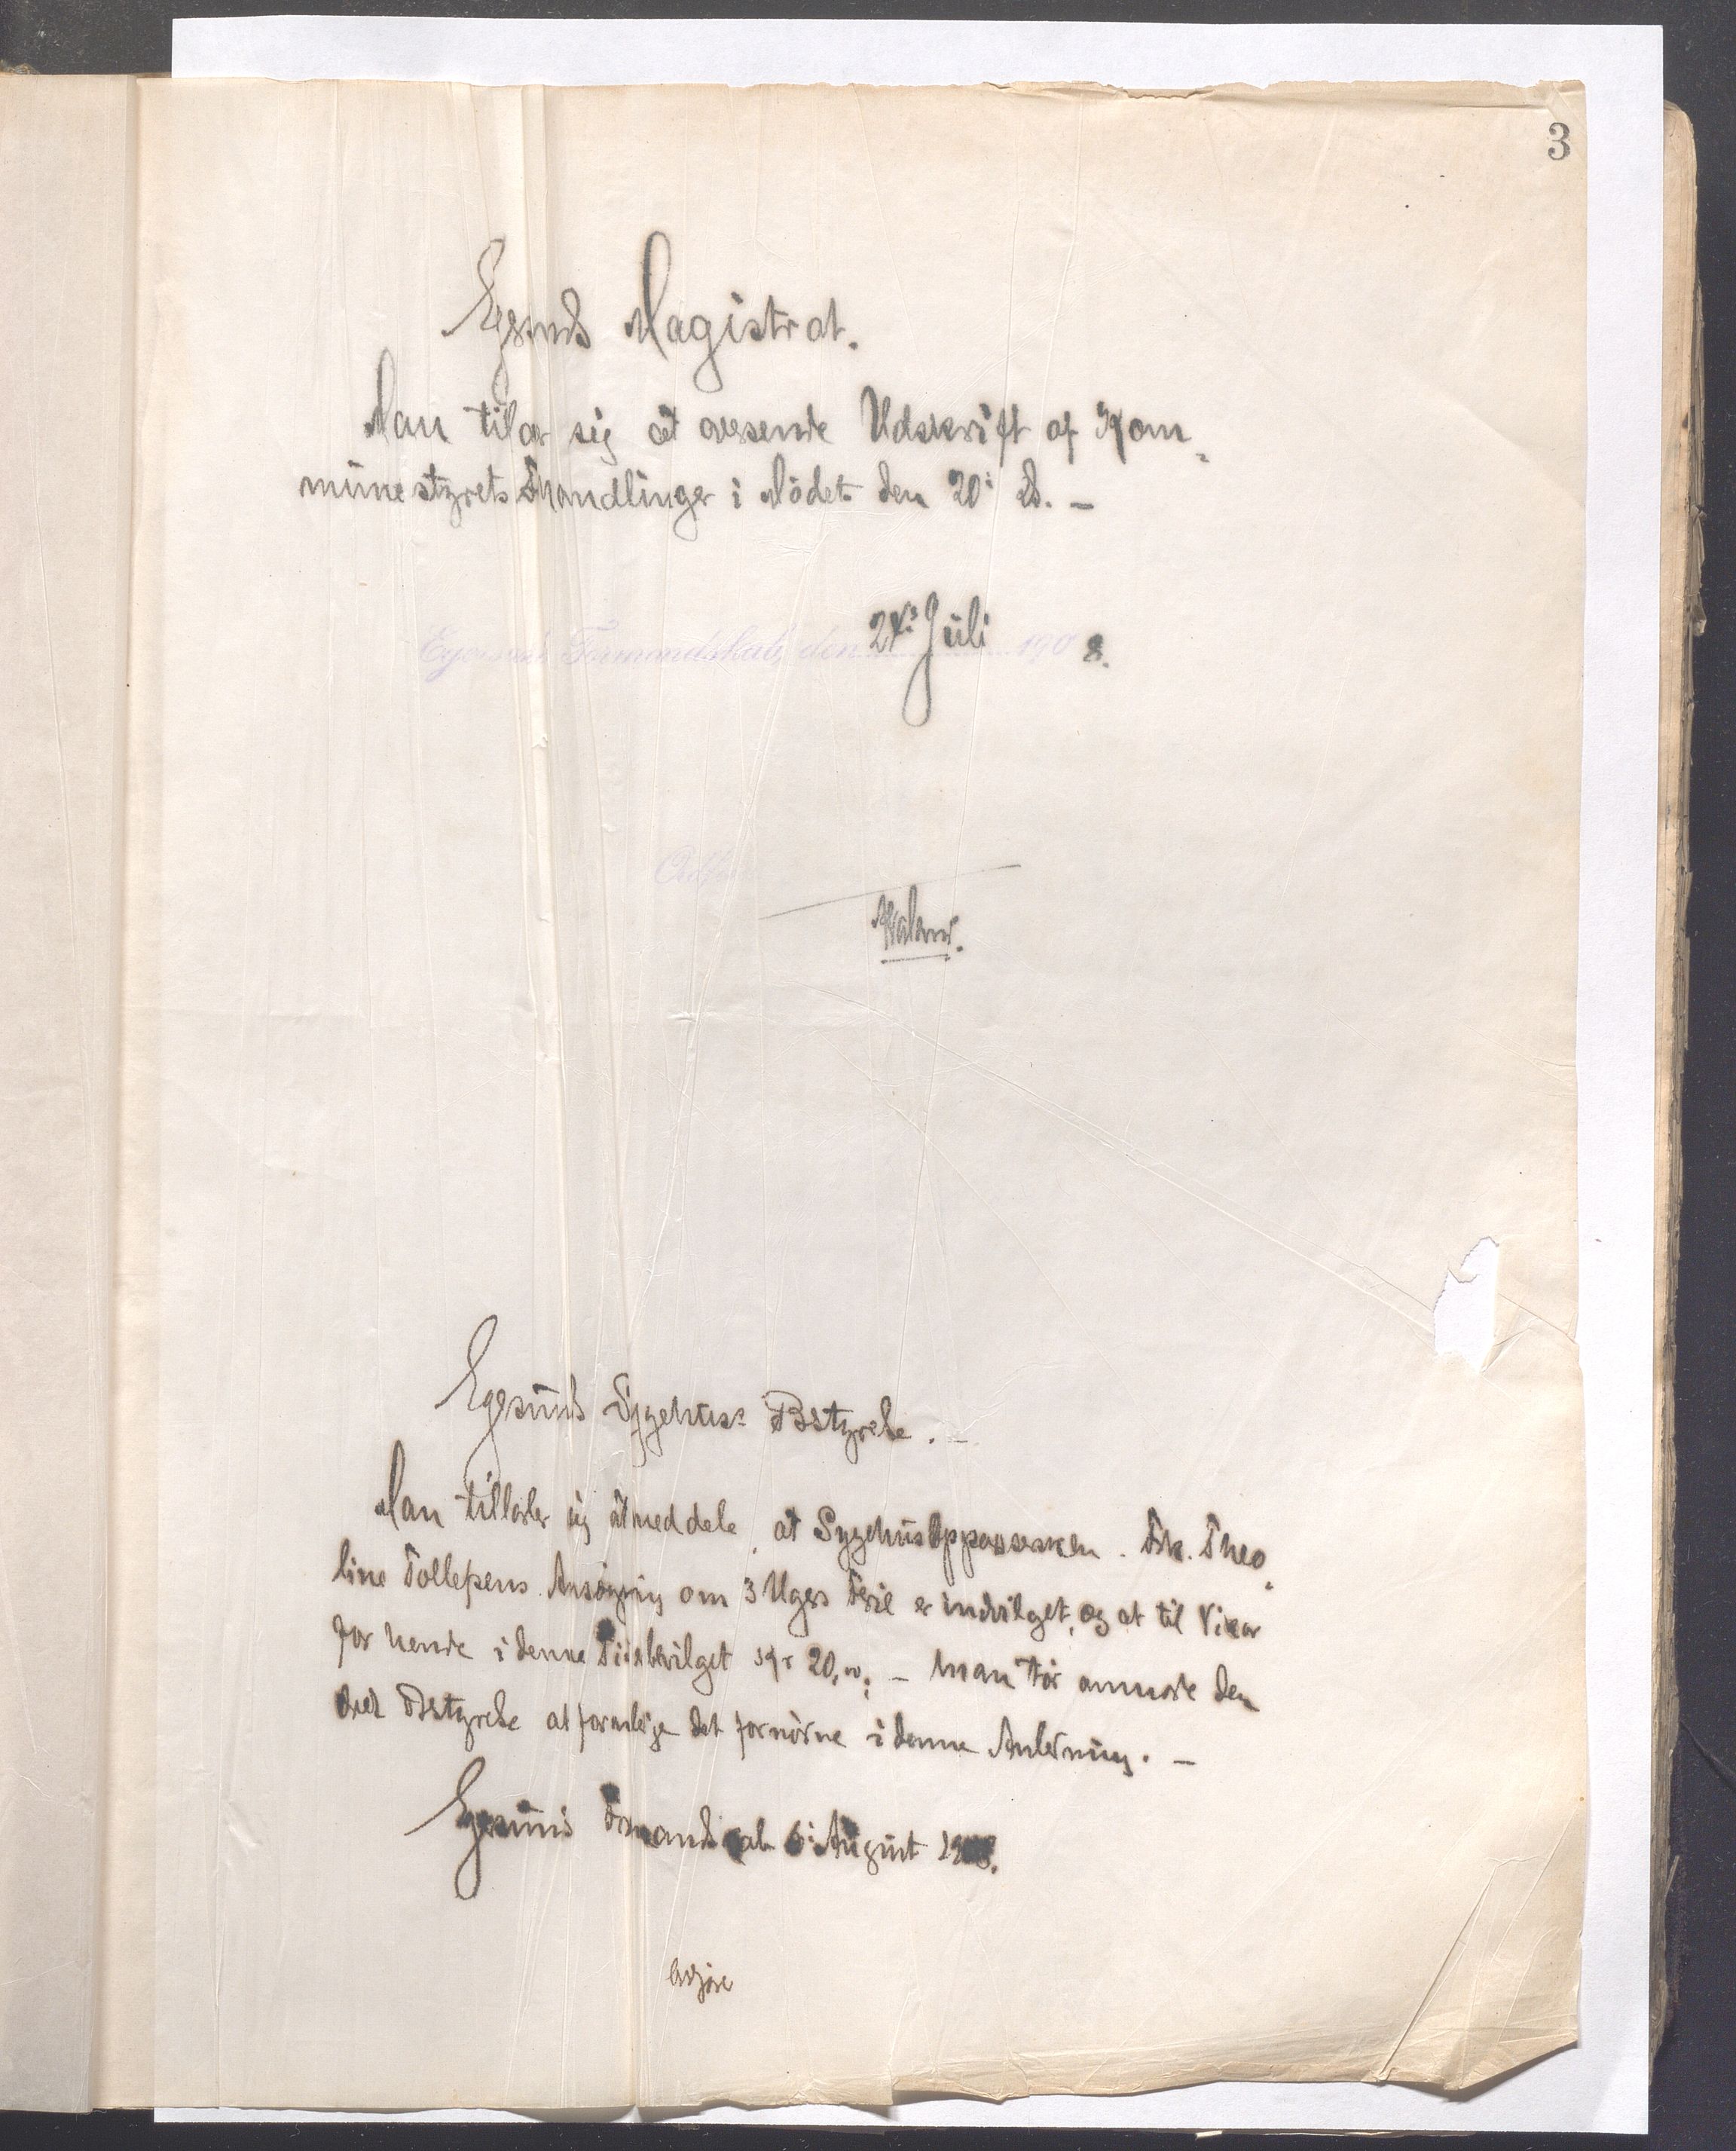 3
Egersunds Magistrat.
Man tillader sig at oversende Udskrift af Kom-
munestyrets Forhandlinger i Mödet den 20: ds. –
Egersunds Formandskab, den 24: Juli 1908.
Egersunds Sygehus: Bestyrelse. –
Man tillader sig at meddele, at Sygehusopassersken. Frk. Theo-
line Tollefsens Ansögning om 3 Ugers Ferie er indvilget, og at til Vikar
for hende i denne Tid er bevilget Kr 20,00; – Man tör anmode den
ærede Bestyrelse at foranledige det fornödne i denne Anledning. –
Egersunds Formandskab 6: August 1908.